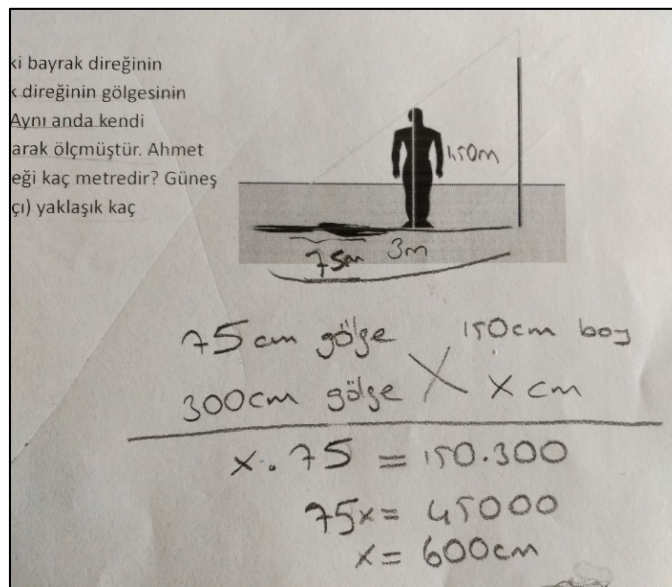 ki bayrak direğinin
k direğinin gölgesinin
Aynı anda kendi
arak ölçmüştür. Ahmet
eği kaç metredir? Güneş
çı) yaklaşık kaç
1,50m
75m 3m
75cm gölge 150cm boy
300cm gölge x cm
x . 75 = 150.300
75x = 45000
x = 600cm